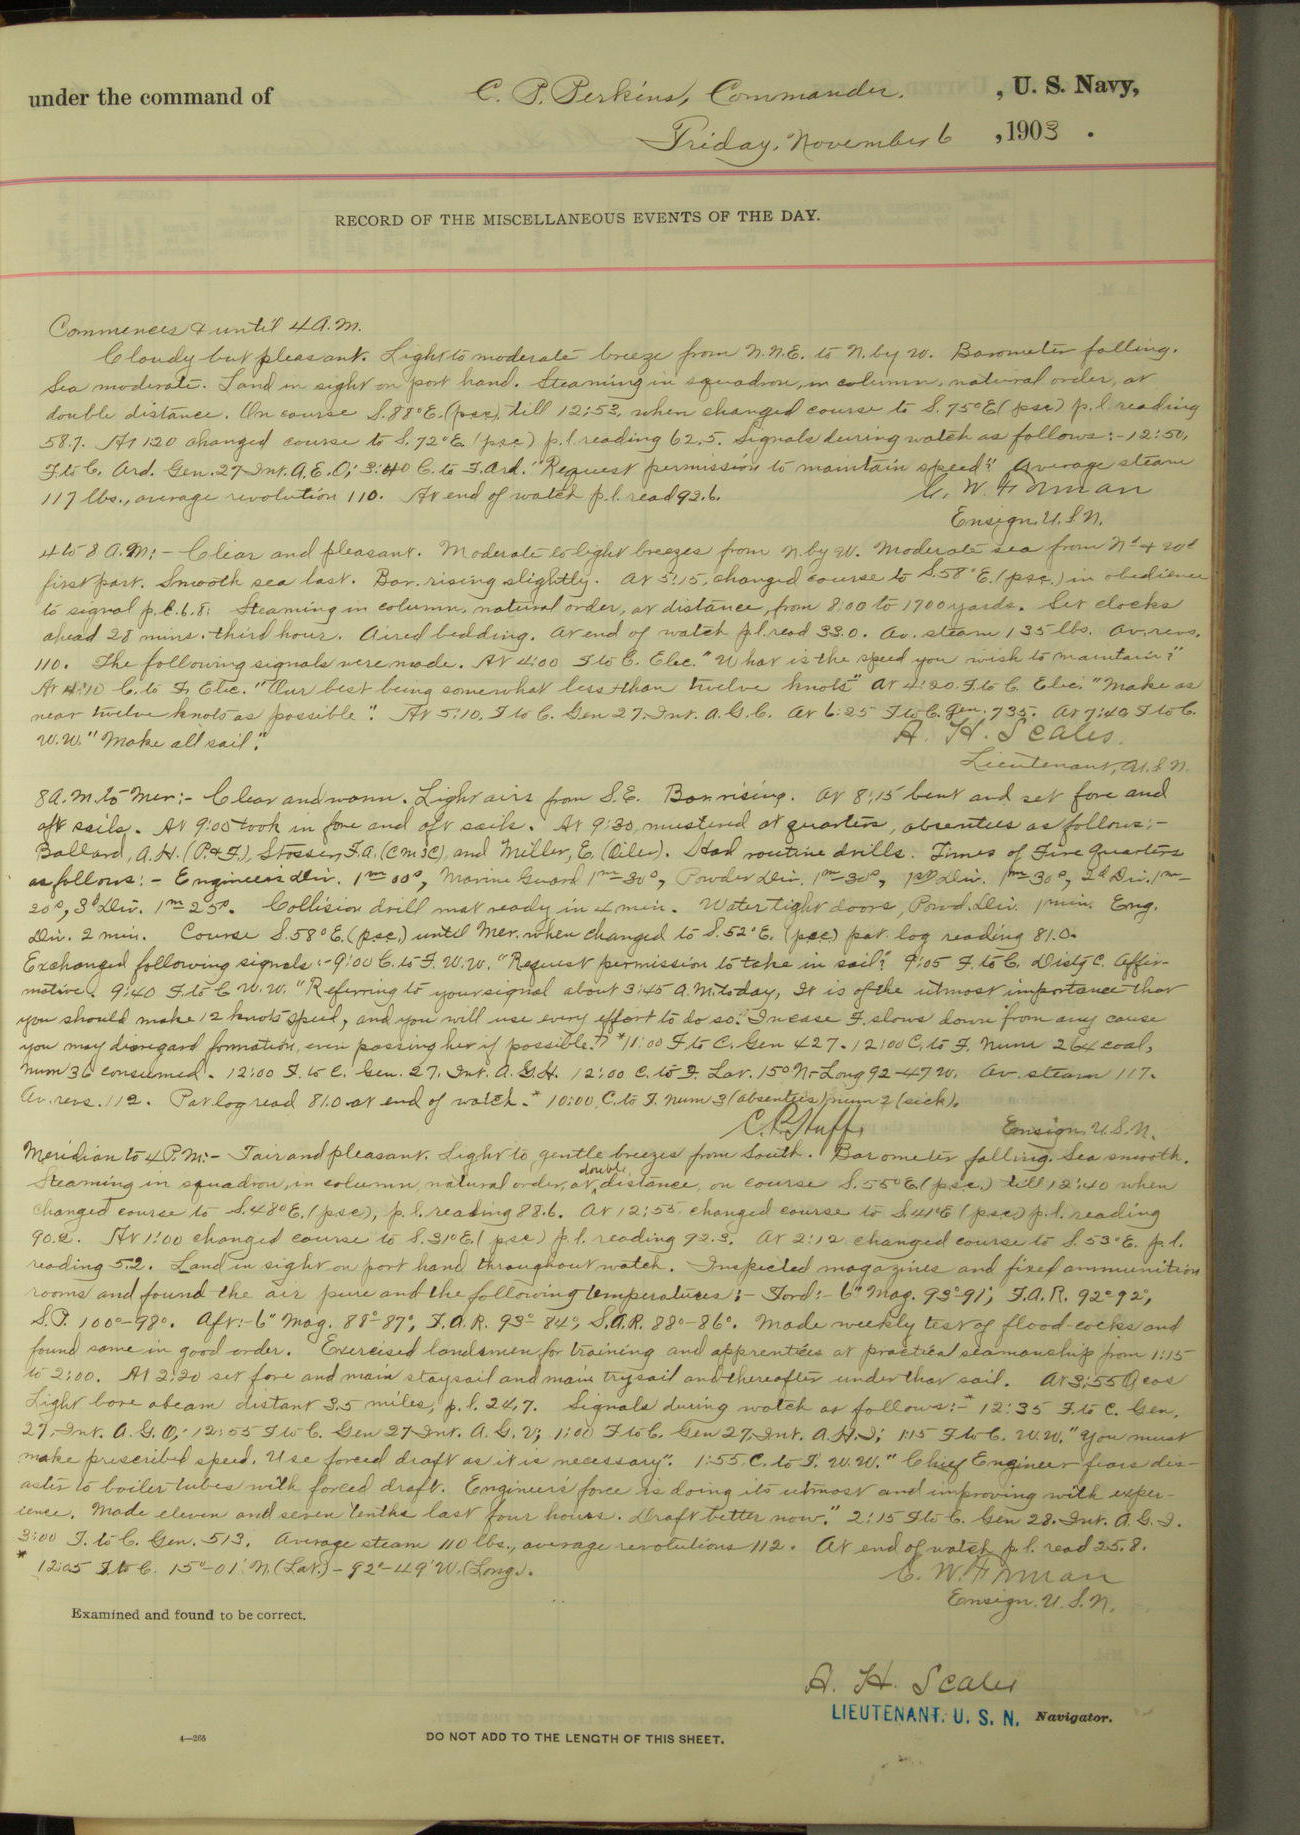 under the command of C. P. Perkins, Commander. , U. S. Navy,
Friday, November 6 , 1903 .
RECORD OF THE MISCELLANEOUS EVENTS OF THE DAY.
Commences & until 4 A.M.
Cloudy but pleasant. Light to moderate breeze from N.N.E. to N. by W. Barometer falling.
Sea moderate. Land in sight on port hand. Steaming in squadron, in column, natural order, at
double distance. On course S. 88° E. (psc), till 12:53, when changed course to S. 75° E (psc) p.l. reading
58.7. At 1:20 changed course to S. 72° E (psc) p.l. reading 62.5. Signals during watch as follows:- 12:50,
F. to C. Ard. Gen. 27 Int. A.E.O; 3:40 C. to F. Ard. "Request permission to maintain speed". Average steam
117 lbs., average revolution 110. At end of watch p.l. read 92.6.
Ensign, U.S.N.
4 to 8 A.M:- Clear and pleasant. Moderate to light breezes from N. by W. Moderate sea from Nd & Wd
first part. Smooth sea last. Bar. rising slightly. At 5:15, changed course to S. 58° E. (psc.) in obedience
to signal p.l. 6.8. Steaming in column, natural order, at distance, from 800 to 1700 yards. Set clocks
ahead 28 mins. third hour. Aired bedding. At end of watch p.l. read 33.0. Av. steam 135 lbs. Av. revs.
110. The following signals were made. At 4:00 F. to C. Elec. "What is the speed you wish to maintain?"
At 4:10 C. to F. Elec. "Our best being somewhat less than twelve knots" At 4:20 F. to C. Elec. "Make as
near twelve knots as possible". At 5:10, F. to C. Gen 27. Int. A.G.C. At 6:25 F to C. Gen. 735. At 7:40 F to C.
W.W. "Make all sail".
A. H. Scales.
Lieutenant, U.S.N.
8 A.M. to Mer:- Clear and warm. Light airs from S.E. Bar rising. At 8:15 bent and set fore and
aft sails. At 9:00 took in fore and aft sails. At 9:30, mustered at quarters, absentees as follows:-
Ballard, A.H. (P.&F.), F.A. (CM3C), and Miller, E. (Oiler). Had routine drills. Times of Fire Quarters
as follows:- Engineers Div. 1m 00s, Marine Guard 1m-30s, Powder Div. 1m-30s, 1st Div. 1m 30s, 2d Div. 1m-
20s, 3d Div. 1m 25s. Collision drill mat ready in 4 min. Water tight doors, Powd. Div. 1 min. Eng.
Div. 2 min. Course S. 58° E. (psc.) until Mer. when changed to S. 52° E. (psc.) pat. log reading 81.0.
Exchanged following signals:- 9:00 C. to F. W.W. "Request permission to take in sail". 9:05 F. to C. C. Affir-
mative. 9:40 F. to C W.W. "Referring to your signal about 3:45 A.M. today, It is of the utmost importance that
you should make 12 knots speed, and you will use every effort to do so. In case F. slows down from any cause
you may disregard formation, even passing her if possible." *11:00 F to C. Gen 427. 12:00 C. to F. Num 264 coal,
Num 36 consumed. 12:00 F. to C. Gen. 27. Int. A.G.H. 12:00 C. to F. Lat. 15° N- Long 92-47 W. Av. steam 117.
Av. revs. 112. Pat log read 81.0 at end of watch. * 10:00, C. to F. Num 3 (absentees) num 2 (sick).
Ensign, U.S.N.
Meridian to 4 P.M:- Fair and pleasant. Light to gentle breezes from South. Barometer falling. Sea smooth.
Steaming in squadron, in column, natural order, at double distance, on course S. 55° E. (p.s.c.) till 12:40 when
changed course to S. 48° E. (psc), p.l. reading 88.6. At 12:55 changed course to S. 41° E (psc) p.l. reading
90.2. At 1:00 changed course to S. 31° E. (psc) p.l. reading 92.3. At 2:12 changed course to S. 53° E. p.l.
reading 5.2. Land in sight on port hand throughout watch. Inspected magazines and fixed ammunition
rooms and found the air pure and the following temperatures:- Ford:- 6" Mag. 93°-91°, F.A.R. 92°-92°,
S.P. 100°-98°. Aft:- 6" Mag. 88°-87°, F.A.R. 93°-84°, S.A.R. 88°-86°. Made weekly test of flood-cocks and
found same in good order. Exercised landsmen for training and apprentices at practical seamanship from 1:15
to 2:00. At 2:20 set fore and main staysail and main trysail and thereafter under that sail. At 3:55 Ocos
Light bore abeam distant 3.5 miles, p.l. 24.7. Signals during watch as follows:-* 12:35 F. to C. Gen.
27. Int. A.G.O; 12:55 F to C. Gen 27 Int. A.G.V; 1:00 F to C. Gen 27. Int. A.H.I; 1:15 F to C. W.W. "You must
make prescribed speed. Use forced draft as it is necessary". 1:55 C. to F. W.W. "Chief Engineer fears dis-
aster to boiler tubes with forced draft. Engineer's force is doing its utmost and improving with exper-
ience. Made eleven and seven tenths last four hours. Draft better now." 2:15 F to C. Gen 28. Int. A.G.I.
3:00 F. to C. Gen. 513. Average steam 110 lbs., average revolutions 112. At end of watch p.l. read 25.8.
* 12:05 F. to C. 15°-01' N. (Lat.) - 92°-49' W. (Long.).
Ensign, U.S.N.
Examined and found to be correct.
A. H. Scales
LIEUTENANT. U. S. N. Navigator.
4—265
DO NOT ADD TO THE LENGTH OF THIS SHEET.